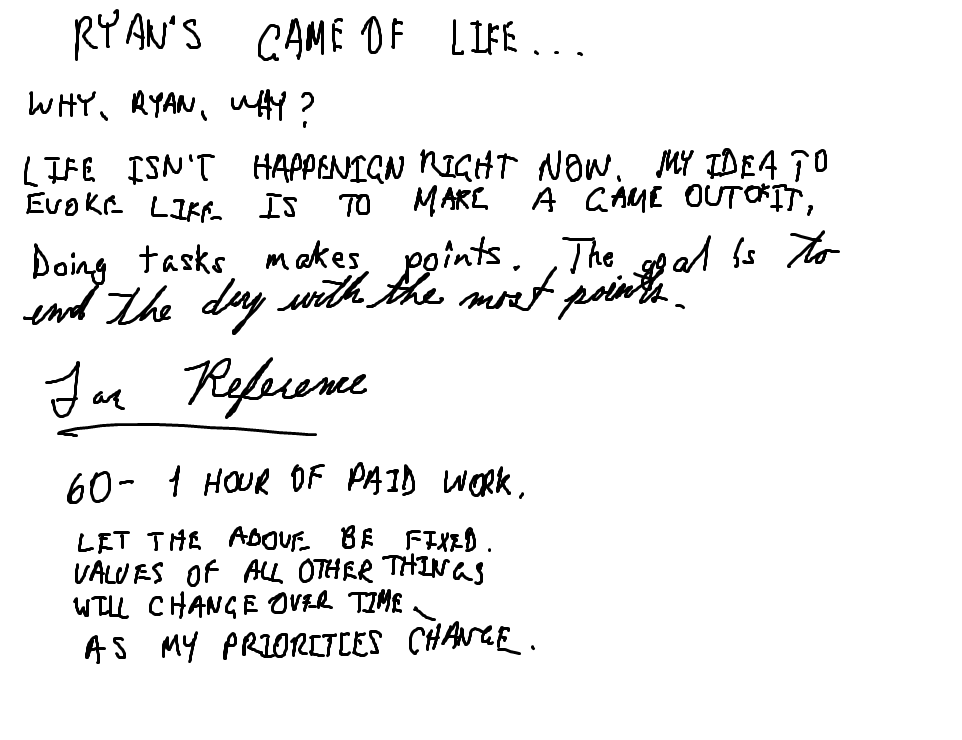 RYAN'S GAME OF LIFE...
WHY, RYAN, WHY?
LIFE ISN'T HAPPENIGN RIGHT NOW. MY IDEA TO
EVOKE LIFE IS TO MAKE A GAME OUT OF IT.
Doing tasks makes points. The goal is to
end the day with the most points.
For Reference
60- 1 HOUR OF PAID WORK.
LET THE ABOVE BE FIXED.
VALUES OF ALL OTHER THINGS
WILL CHANGE OVER TIME
AS MY PRIORITIES CHANGE.